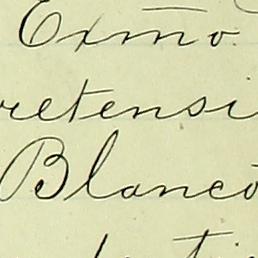 Exmo.
retensi
Blanco